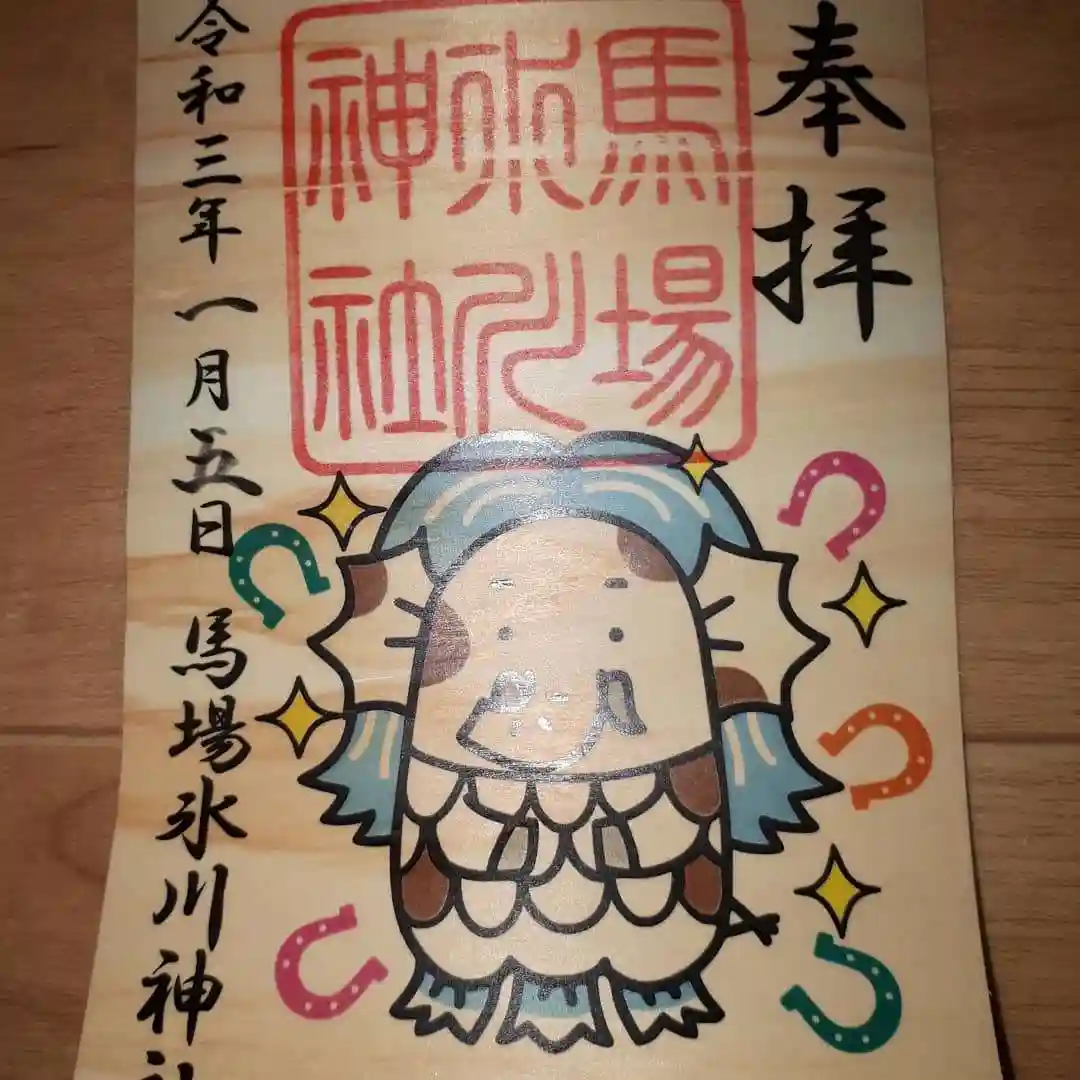 奉拝
馬場
氷川
神社
令和三年一月五日 馬場氷川神社